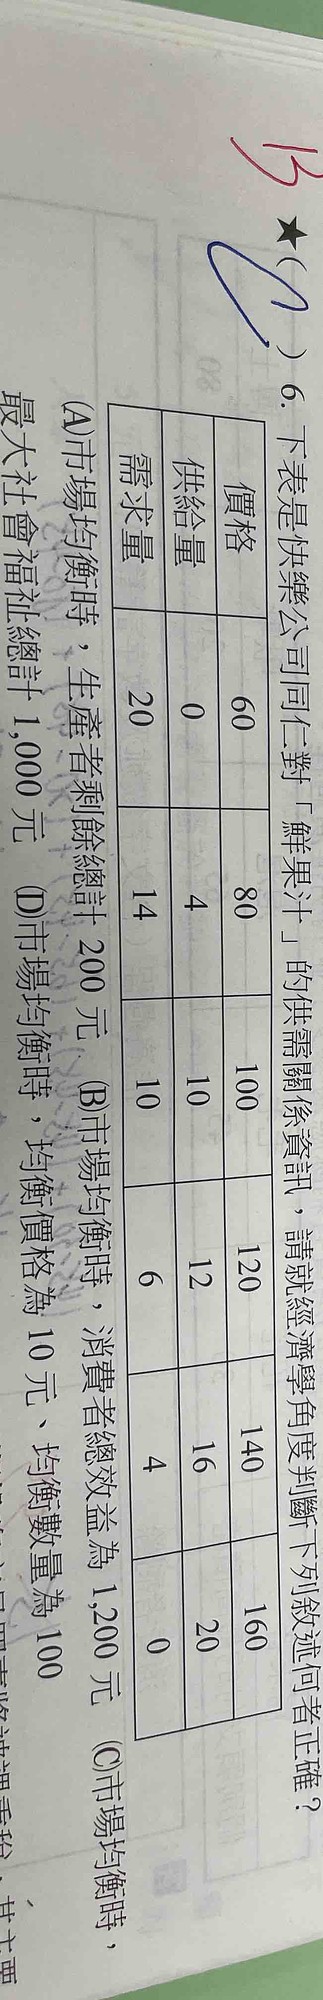 B
★( C ) 6. 下表是快樂公司同仁對「鮮果汁」的供需關係資訊，請就經濟學角度判斷下列敘述何者正確？
價格 60 80 100 120 140 160
供給量 0 4 10 12 16 20
需求量 20 14 10 6 4 0
(A)市場均衡時，生產者剩餘總計 200 元 (B)市場均衡時，消費者總效益為 1,200 元 (C)市場均衡時，
最大社會福祉總計 1,000 元 (D)市場均衡時，均衡價格為 10 元、均衡數量為 100